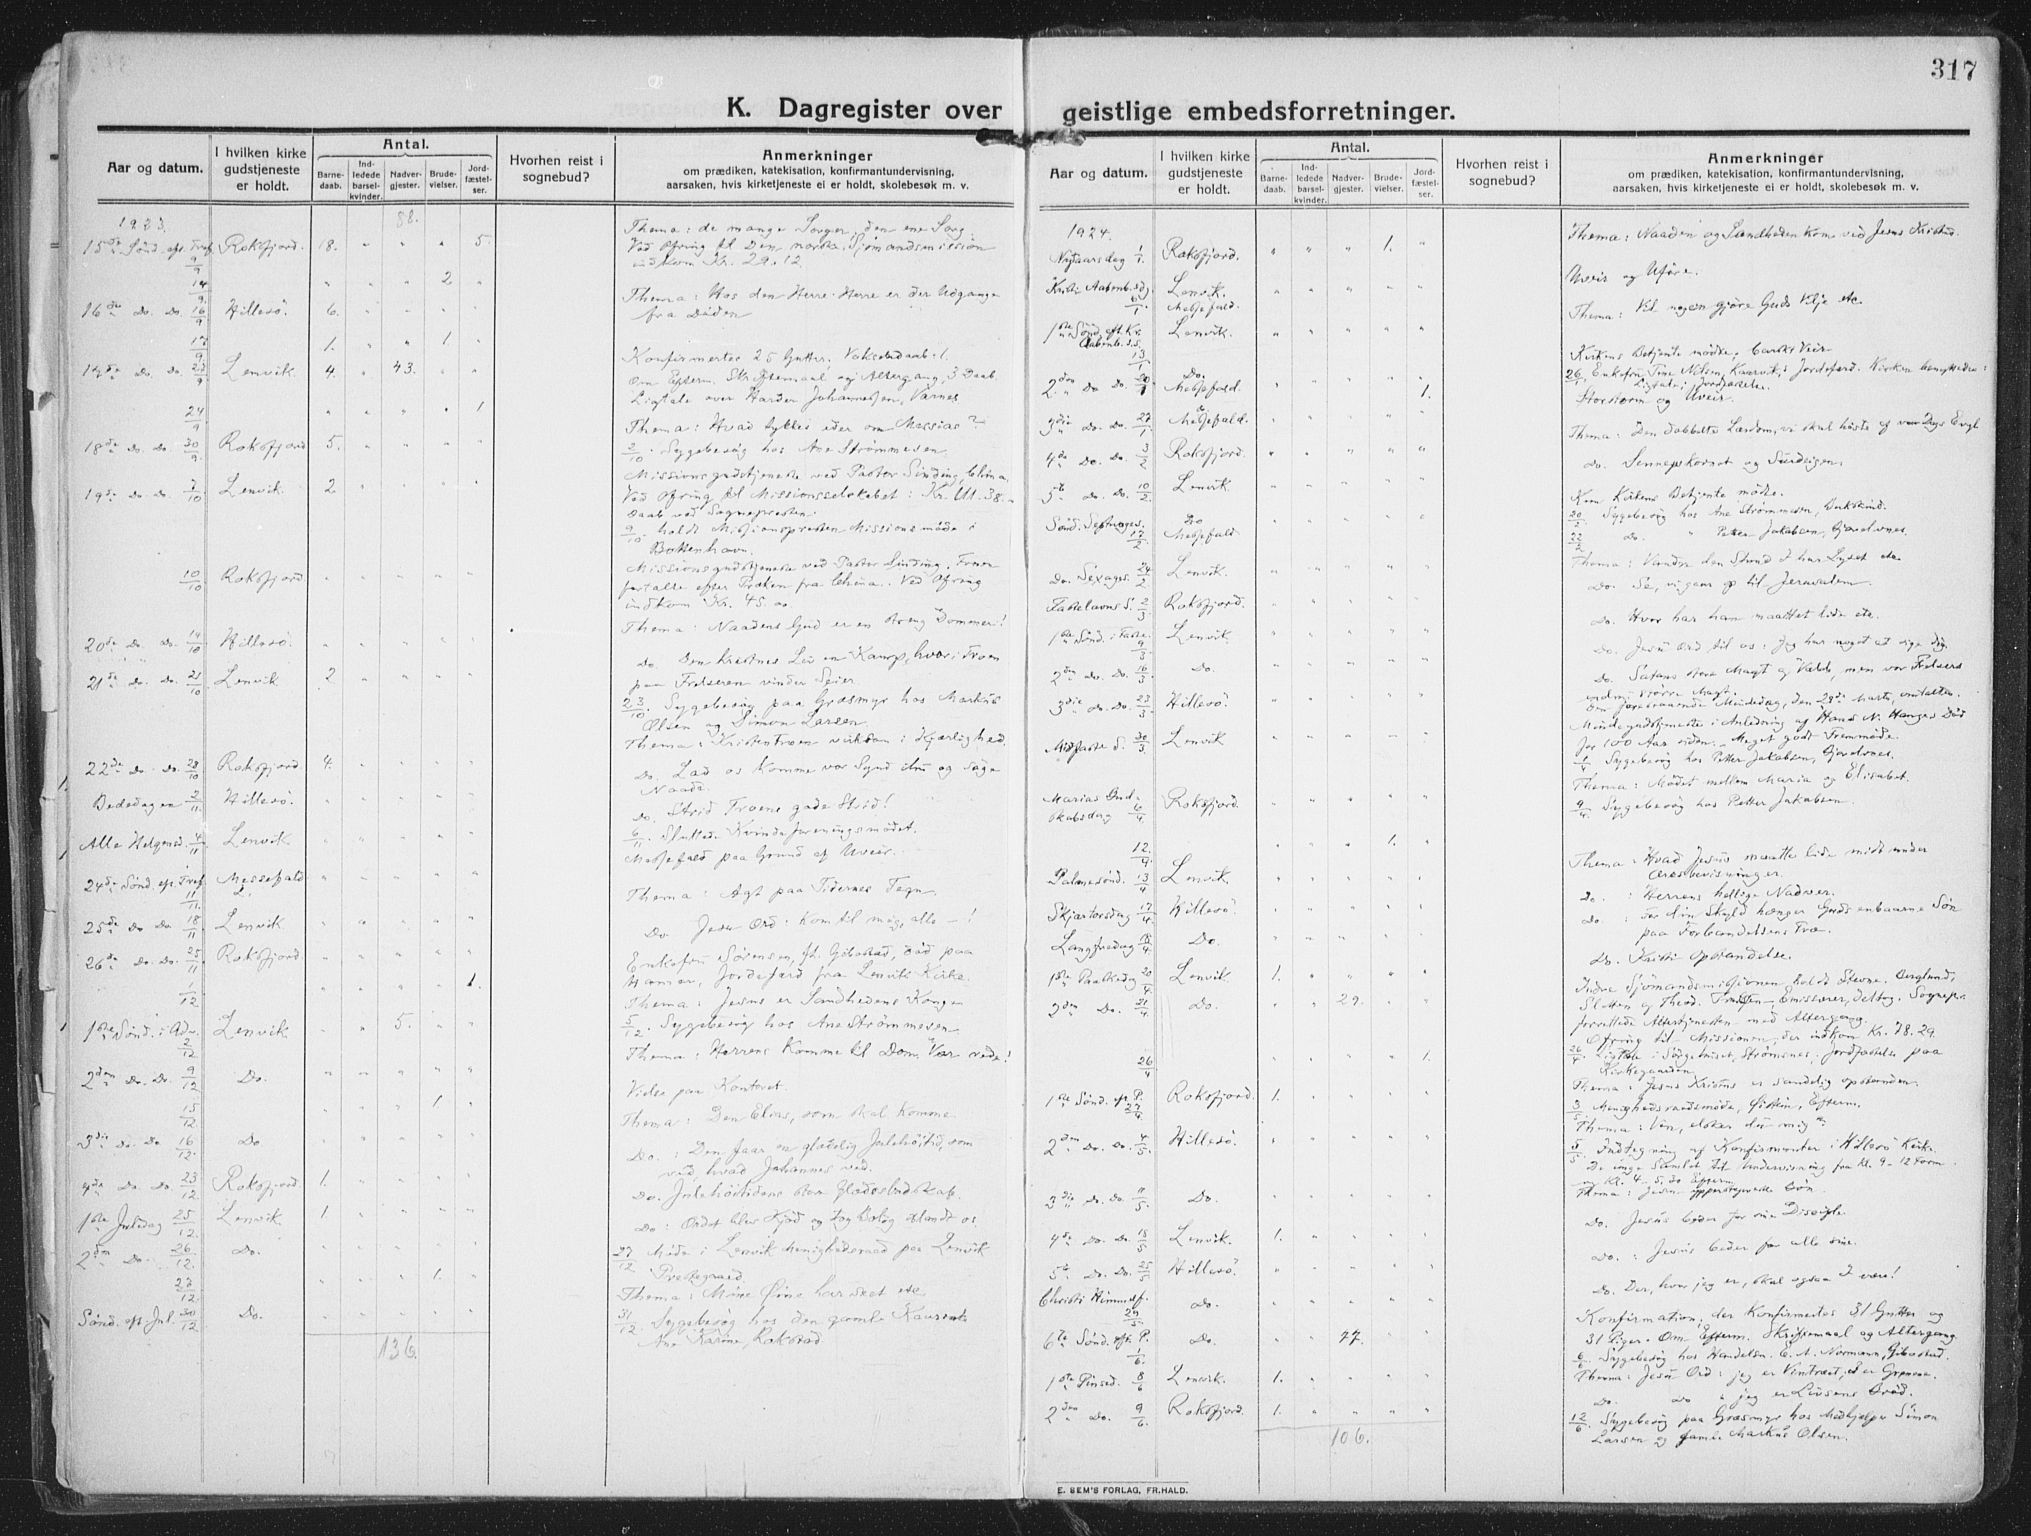 317
K. Dagregister over geistlige embedsforretninger.
Aar og datum.
I hvilken kirke gudstjeneste er holdt.
Antal.
Barne-daab.
Ind-ledede barsel-kvinder.
Nadver-gjester.
Brude-vielser.
Jord-fæstel-ser.
Hvorhen reist i sognebud?
Anmerkninger
om prædiken, katekisation, konfirmantundervisning,
aarsaken, hvis kirketjeneste ei er holdt, skolebesøk m. v.
1923. 88.
15de Sönd. eft. Tref. 9/9 Roksfjord. 18. " " " 5. Thema: de mange Sorger, den ene Sorg.
Ved Ofring til Den norske Sjømandsmission
indkom Kr. 29.12
14/9. " " " 2 "
16de Do. Do. 16/9 Hillesö. 6. Thema: Hos den Herre Herre er der Udgange
fra Döden
17/9. 1. " " 1 "
17de Do. Do. 23/9 Lenvik. 4. " 43. " " Konfirmertes 25 Gutter.
Om Efterm. Skriftemaal og Altergang, 3 Daab.
24/9 " " " " 1 Ligtale over Harder Johannessen, Varnes
18de Do. Do. 30/9. Roksfjord 5. Thema: Hvad tykkes eder om Messias?
2/10. Sygebesög hos Ane Strömmesen.
19de Do. Do. 7/10 Lenvik. 2 Missionsgudstjeneste ved Pastor Sinding, China.
Ved Ofring til Missionsselskabet: Kr.
Daab ved Sognepresten.
9/10. holdt Missionspresten Missionsmöde i
Bottenhavn.
10/10 Roksfjord. Missionsgudstjeneste ved Pastor Sinding.
fortalte efter Præken fra China. Ved Ofring
indkom Kr. 45.00
20de Do. Do. 14/10 Hillesö. Thema: Naadens Gud er en streng Dommer!
21de Do. Do. 21/10 Lenvik 2 Do. Den kristnes Liv en Kamp, hvori Troen
paa Frelseren vinder Seier.
23/10. Sygebesög paa Græsmyr hos Markus
Olsen og Simon Larsen.
Thema: Kristentroen virksom i Kjærlighed.
22de Do. Do. 28/10 Roksfjord 4. Do. Lad os komme vor Synd ihu og söge
Naade.
Bededagen 2/11. Hillesö. Do. Strid Troens gode Strid!
Alle Helgensd. 4/11 Lenvik. 6/11. Sluttede Kvindeforeningsmödet.
24de Sönd. eft. Tref. 11/11. Messefald Messefald paa Grund af Uveir.
25de Do Do 18/11. Lenvik Thema: Agt paa Tidernes Tegn
26de Do. Do. 25/11 Roksfjord Do. Jesu Ord: Kom til mig, alle -!
1/12 " " " " 1. Enkefru Sörensen, Gibostad, död paa
Hamar, Jordefærd fra Lenvik Kirke
1ste Sönd. i Adv. 2/12 Lenvik " " 5. " " Thema: Jesus er Sandhedens Konge
5/12. Sygebesög hos Ane Strömmesen
2den Do. Do. 9/12 Do. Thema: Herrens Komme til Dom. Vær rede!
15/12. " " " 1. " Vielse paa Kontoret.
3die Do. Do 16/12. Do Thema: Den Elias, som skal komme
4de Do Do. 23/12. Roksfjord 1. Do.: Den faar en glædelig Julehöitid, som
ved, hvad Johannes ved.
1ste Juledag 25/12. Lenvik. 1 Do. Julehöitidens store Glædesbudskab.
2den Do. 26/12. Do. Do: Ordet blev Kjöd og tog Bolig iblandt os
27/12. " " " 1. " 27/12 Möde i Lenvik Menighedsraad paa Lenvik
Prestegaard.
Sönd. eft. Jul. 30/12 Do. Thema: Mine Öine har seet etc
31/12. Sygebesög hos den gamle
Ane Karine, Rokstad
136.
1924.
Nytaarsdag 1/1. Roksfjord. " " " 1. " Thema: Naaden og Sandheden kom ved Jesus Kristus.
Kristi Aabenb.dg. 6/1. Lenvik. Messefald. Uveir og Uføre.
1ste Sönd. eft. Kr. Aabenb. 13/1 Lenvik. Thema: Vil nogen gjöre Guds Vilje etc.
2den Do Do. 20/1 Do. Messefald. 1. Kirkens Betjente mødte. barskt Veir
26/1. Enkefru Nilsen, Kaarvik, Jordefærd. Kirken benyttedes:
Ligtale, Jordfæstelse.
3die Do. Do. 27/1. Messefald. Storstorm og Uveir.
4de Do. Do. 3/2 Roksfjord. Thema: Den dobbelte Lærdom, vi skal høste af vor Dags Evgl
5te Do. Do. 10/2. Lenvik. do. Sennepskornet og Surdeigen.
Sönd. Septuages. 17/2 Do Messefald Kun Kirkens Betjente mødte.
20/2. Sygebesög hos Ane Strömmesen,
22/2 do. " Petter Jakobsen, Gjøvelsnes.
Do. Sexages. 24/2 Lenvik. Thema: Vandre den Stund I har Lyset etc
Fastelavns S. 2/3 Roksfjord. Do. Se, vi gaar op til Jerusalem
1ste Sönd. i Faste. 9/3 Lenvik. Do. Hvor har han maattet lide etc.
2den Do. Do. 16/3. Do. Do. Jesu Ord til os: Jeg har noget at sige dig.
3die do. Do. 23/3. Hillesö. Do. Satans store Magt og Vælde, men vor Frelsers
endnu större Magt.
Midfaste S. 30/3. Lenvik Den forestaaende Mindedag, den 29de Marts, omtaltes.
Mindegudstjeneste i Anledning af Hans N. Hauges Död
for 100 Aar siden. Meget godt Fremmöde.
1/4 Sygebesög hos Petter Jakobsen, Gjøvelsnes.
Marias Budskabsdag 6/4 Roksfjord. Thema: Mödet mellem Maria og Elisabet.
9/4. Sygebesög hos Petter Jakobsen.
12/4. " " " 1. "
Palmesönd. 13/4 Lenvik. Thema: Hvad Jesus maatte lide midt under
Æresbevisninger.
Skjærtorsdag 17/4. Hillesö. Do.: Herrens hellige Nadver.
Langfredag 18/4. Do. do.: For din Skyld hænger Guds enbaarne Sön
paa Forbandelsens Træ.
1ste Paaskedg 20/4. Lenvik 1. Do. Kristi Opstandelse.
2den Do. 21/4. Do. " " 29. " " Indre Sjömandsmissionen holdt Stevne. Berglund,
Sletten og Theod. Emissærer, deltog. Sognepr.
forrettede Altertjenesten med Altergang.
Ofring til Missionen, der indkom Kr. 78.29
26/4 " " " " 1. 26/4. Ligtale i Sörgehuset, Strömsnes. Jordfæstelse paa
Kirkegaarden
1ste Sönd. eft. P. 27/4 Roksfjord. 1. Thema: Jesus Kristus er sandelig opstanden.
3/5. Menighedsraadsmöde, Efterm.
2den Do. Do. 4/5. Hillesö. Thema: elsker du mig?
5/5. Indtegning af Konfirmanter i Hillesö Kirke.
De unge samlet til Undervisning fra Kl. 9-12 Form
og Kl. 4-5.30 Efterm.
3die Do. Do. 11/5. Do. Thema: Jesus Sön.
4de Do. Do. 18/5 Lenvik. 1. Do. Jesus beder for sine Disciple.
5te Do. Do. 25/5 Hillesö. Do.: Jesus beder for alle sine.
Christi Himmelf. 29/5. Do. Do. Der, hvor jeg er, skal ogsaa I være!
6te Sönd. eft. P. 1/6. Do. " " 77. " " Konfirmation; der Konfirmertes 31 Gutter og
31 Piger. Om Efterm. Skriftemaal og Altergang
6/6 Sygebesög hos Handelsm. E. A. Normann, Gibostad.
1ste Pinsed. 8/6 Lenvik. 1. Thema: Jesu Ord: jeg er Vintræet, I er Grenene.
2den Do. 9/6. Roksfjord. 1. Do. Do " jeg er Livsens Bröd.
12/6 Sygebesög paa Græsmyr hos Medhjelper Simon
Larsen og gamle Markus Olsen.
106.
E. SEM'S FORLAG, FR.HALD.